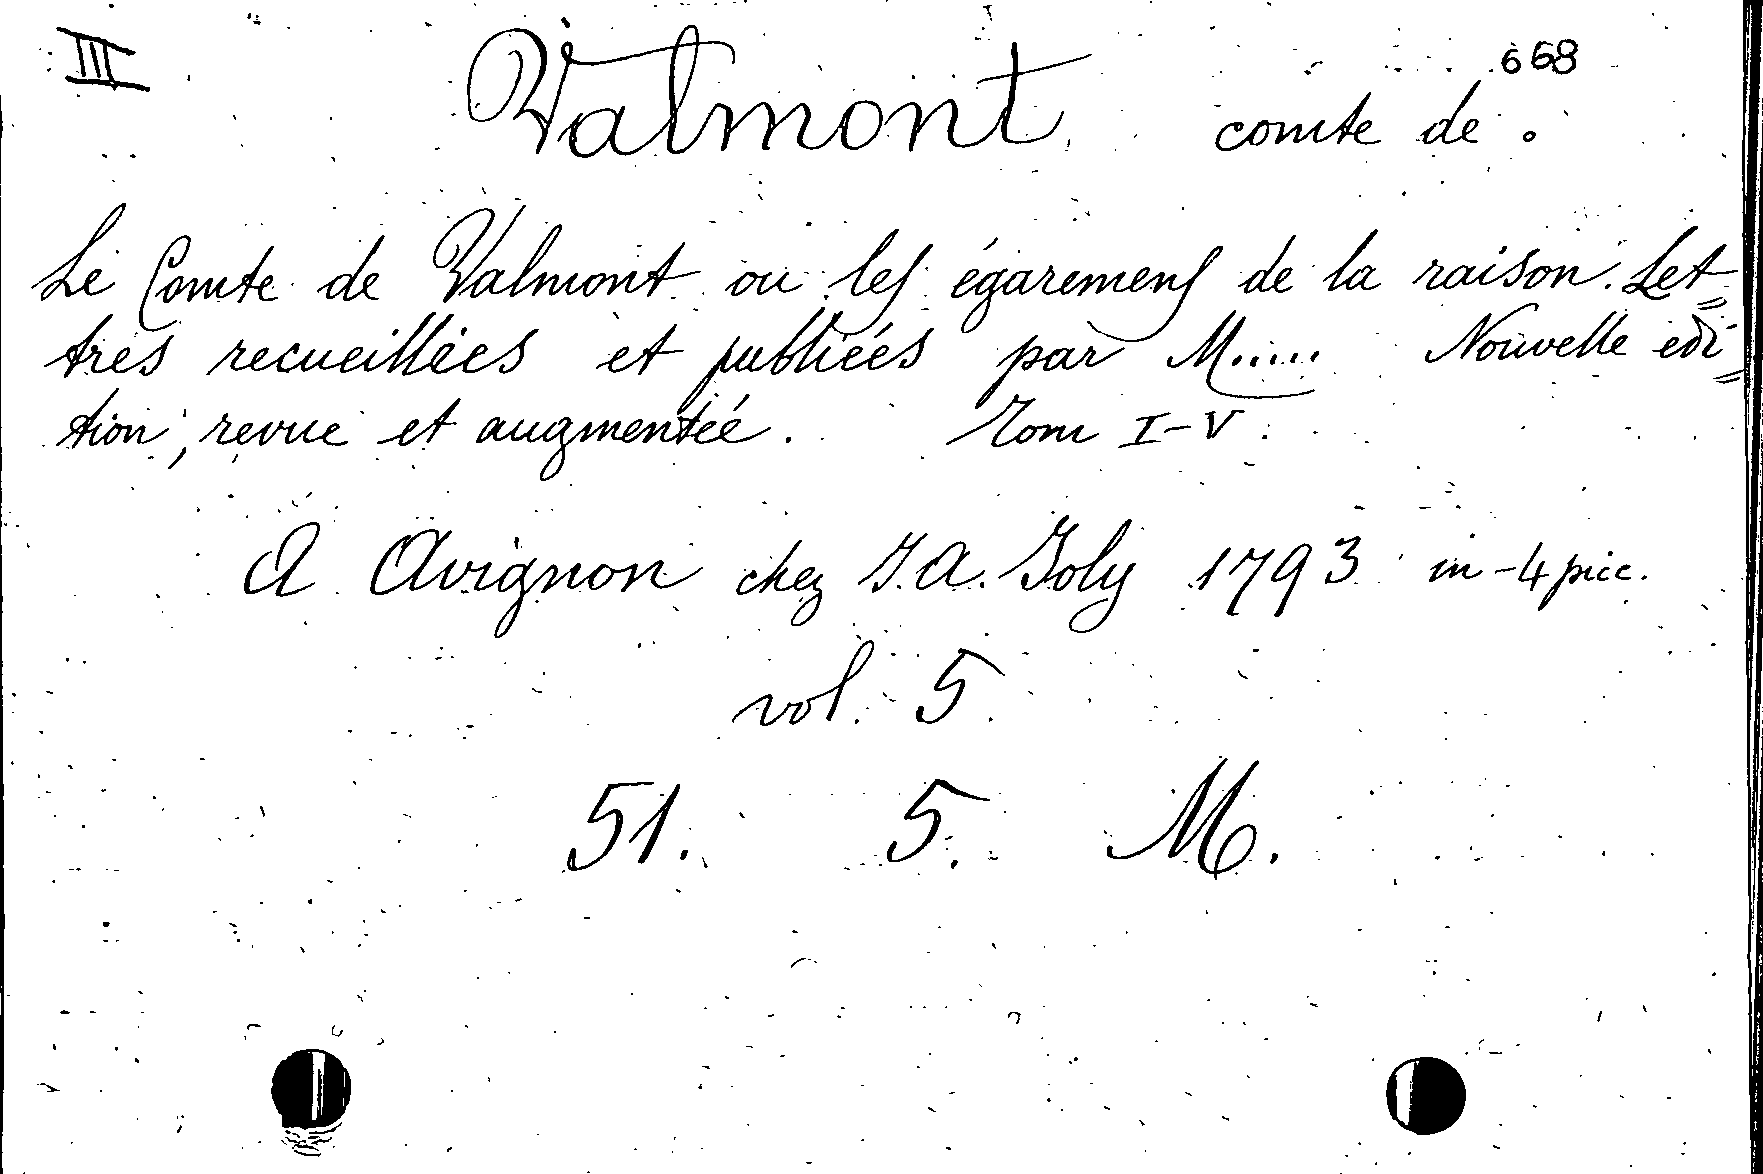 III 668
Valmont comte de.
Le Comte de Valmont ou les égaremens de la raison. Let=
tres recueillées et publiées par M..... Nouvelle edi=
tion, revue et augmentée. Tom I-V.
A Avignon chez J. A. Joly 1793 in-4 picc.
vol. 5.
51. 5. M.